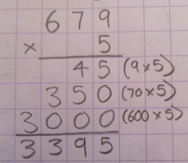 679
× 5
45 (9×5)
350 (70×5)
3000 (600×5)
3395